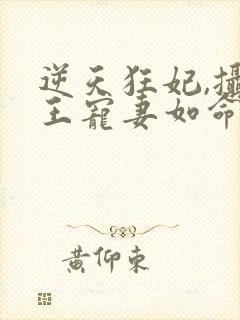 逆天狂妃,攝
王寵妻如命
黃仰東